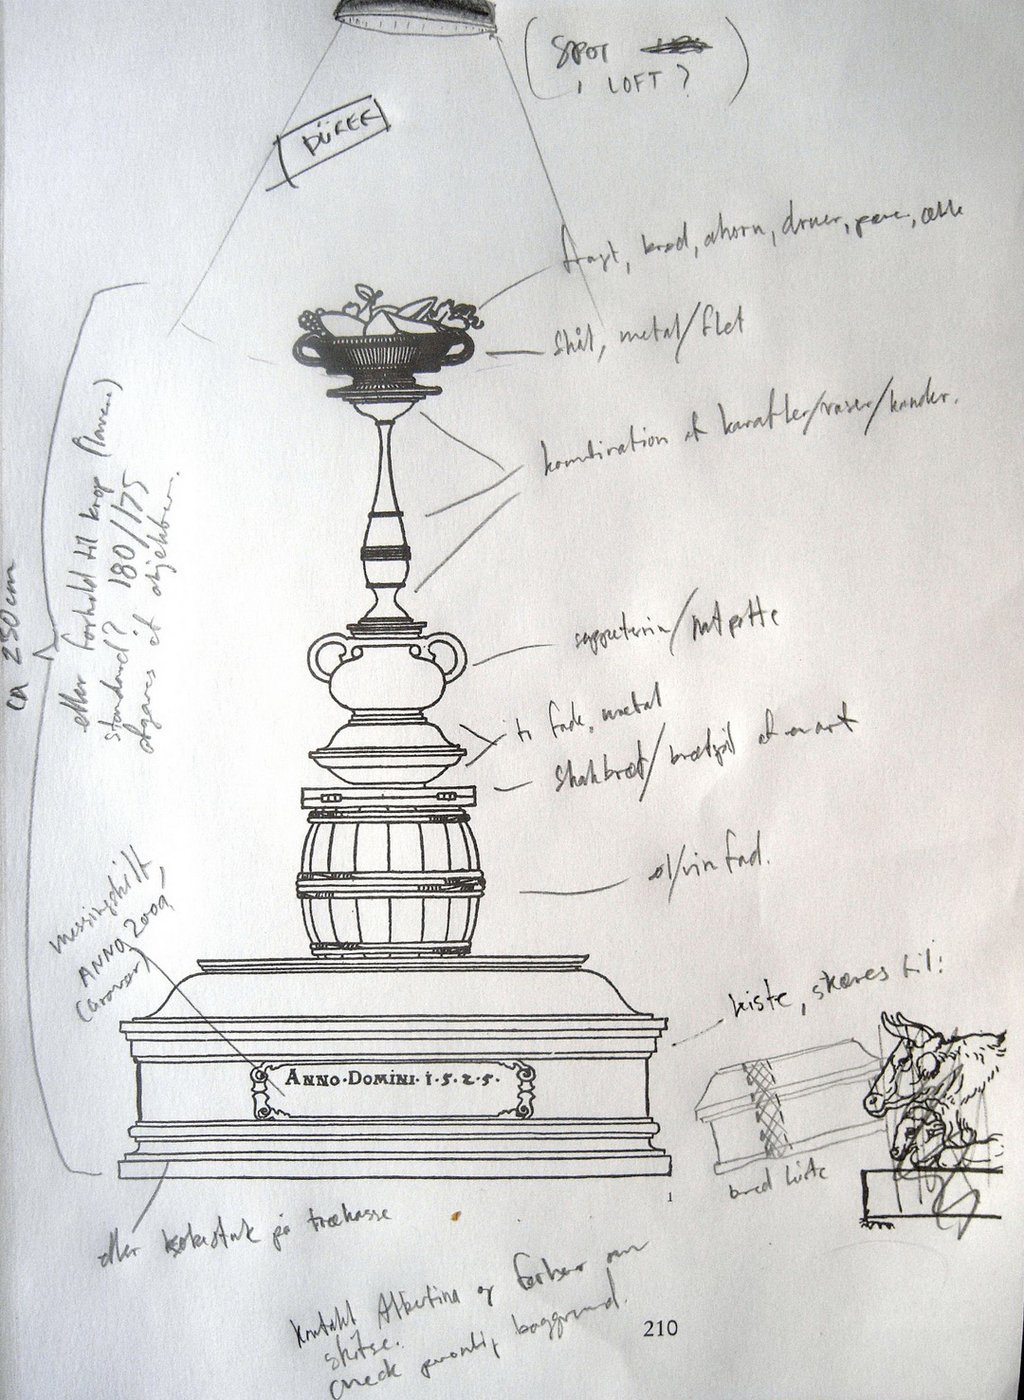 (SPOT
, LOFT?)
DÜRER
frugt, brød, ahorn, druer, pære,
skål, metal/flet
kombination af karafler/vaser/kander.
ca 250 cm
eller forhold til krop
standard? 180/175
afgøres af objekterne.
suppeterrin/
to fade, metal
skakbræt/brætspil af en art
øl/vin fad.
Messingskilt
ANNO 2009
kiste, skæres til:
ANNO·DOMINI·1·5·2·5·
bred kiste
1
eller på trækasse
kontakt Albertina og
skitse.
check baggrund.
210